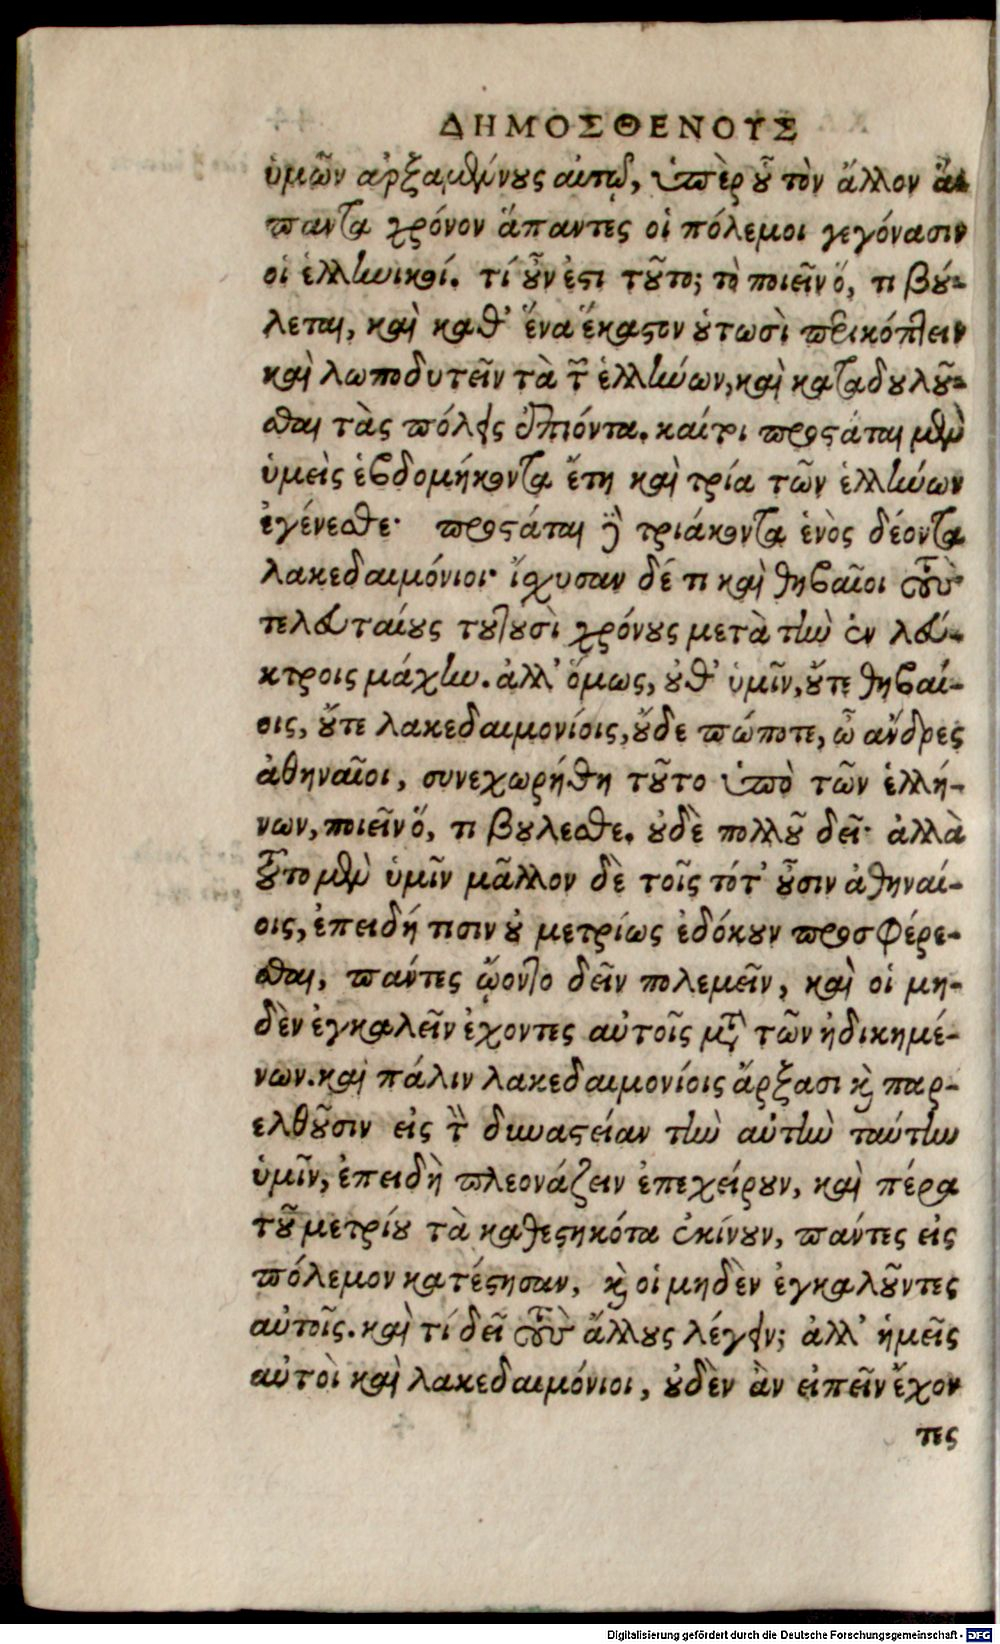 ΔΗΜΟΣΘΕΝΟΥΣ
ὑμῶν ἀρξαμένους αὐτῷ, ὑπὲρ οὗ τὸν ἄλλον ἅ-
παντα χρόνον ἅπαντες οἱ πόλεμοι γεγόνασιν
οἱ ἑλληνικοί. τί οὖν ἐστι τοῦτο; τὸ ποιεῖν ὅ, τι βού-
λεται, καὶ καθ' ἕνα ἕκαστον οὑτωσὶ περικόπτειν
καὶ λωποδυτεῖν τὰ τῶν ἑλλήνων, καὶ καταδουλοῦ-
σθαι τὰς πόλεις ἐπιόντα. καίτοι προστάται μὲν
ὑμεὶς ἑβδομήκοντα ἔτη καὶ τρία τῶν ἑλλήνων
ἐγένεσθε· προστάται δὲ τριάκοντα ἑνὸς δέοντα
λακεδαιμόνιοι· ἴσχυσαν δέ τι καὶ θηβαῖοι τοὺς
τελευταίους τουτουσὶ χρόνους μετὰ τὴν ἐν λεύ-
κτροις μάχην. ἀλλ' ὅμως, οὐθ' ὑμῖν, οὔτε θηβαί-
οις, οὔτε λακεδαιμονίοις, οὔδε πώποτε, ὦ ἄνδρες
ἀθηναῖοι, συνεχωρήθη τοῦτο ὑπὸ τῶν ἑλλή-
νων, ποιεῖν ὅ, τι βουλεσθε. οὐδὲ πολλοῦ δεῖ· ἀλλὰ
τοῦτο μὲν ὑμῖν μᾶλλον δὲ τοῖς τότ' οὖσιν ἀθηναί-
οις, ἐπειδή τισιν οὐ μετρίως ἐδόκουν προσφέρε-
σθαι, πάντες ᾤοντο δεῖν πολεμεῖν, καὶ οἱ μη-
δὲν ἐγκαλεῖν ἔχοντες αὐτοῖς μετὰ τῶν ἠδικημέ-
νων. καὶ πάλιν λακεδαιμονίοις ἄρξασι καὶ παρ-
ελθοῦσιν εἰς τὴν δυναστείαν τὴν αὐτὴν ταύτην
ὑμῖν, ἐπειδὴ πλεονάζειν ἐπεχείρουν, καὶ πέρα
τοῦ μετρίου τὰ καθεστηκότα ἐκίνουν, πάντες εἰς
πόλεμον κατέστησαν, καὶ οἱ μηδὲν ἐγκαλοῦντες
αὐτοῖς. καὶ τί δεῖ τοὺς ἄλλους λέγειν; ἀλλ' ἡμεῖς
αὐτοὶ καὶ λακεδαιμόνιοι, οὐδὲν ἂν εἰπεῖν ἔχον
τες
Digitalisierung gefördert durch die Deutsche Forschungsgemeinschaft - DFG